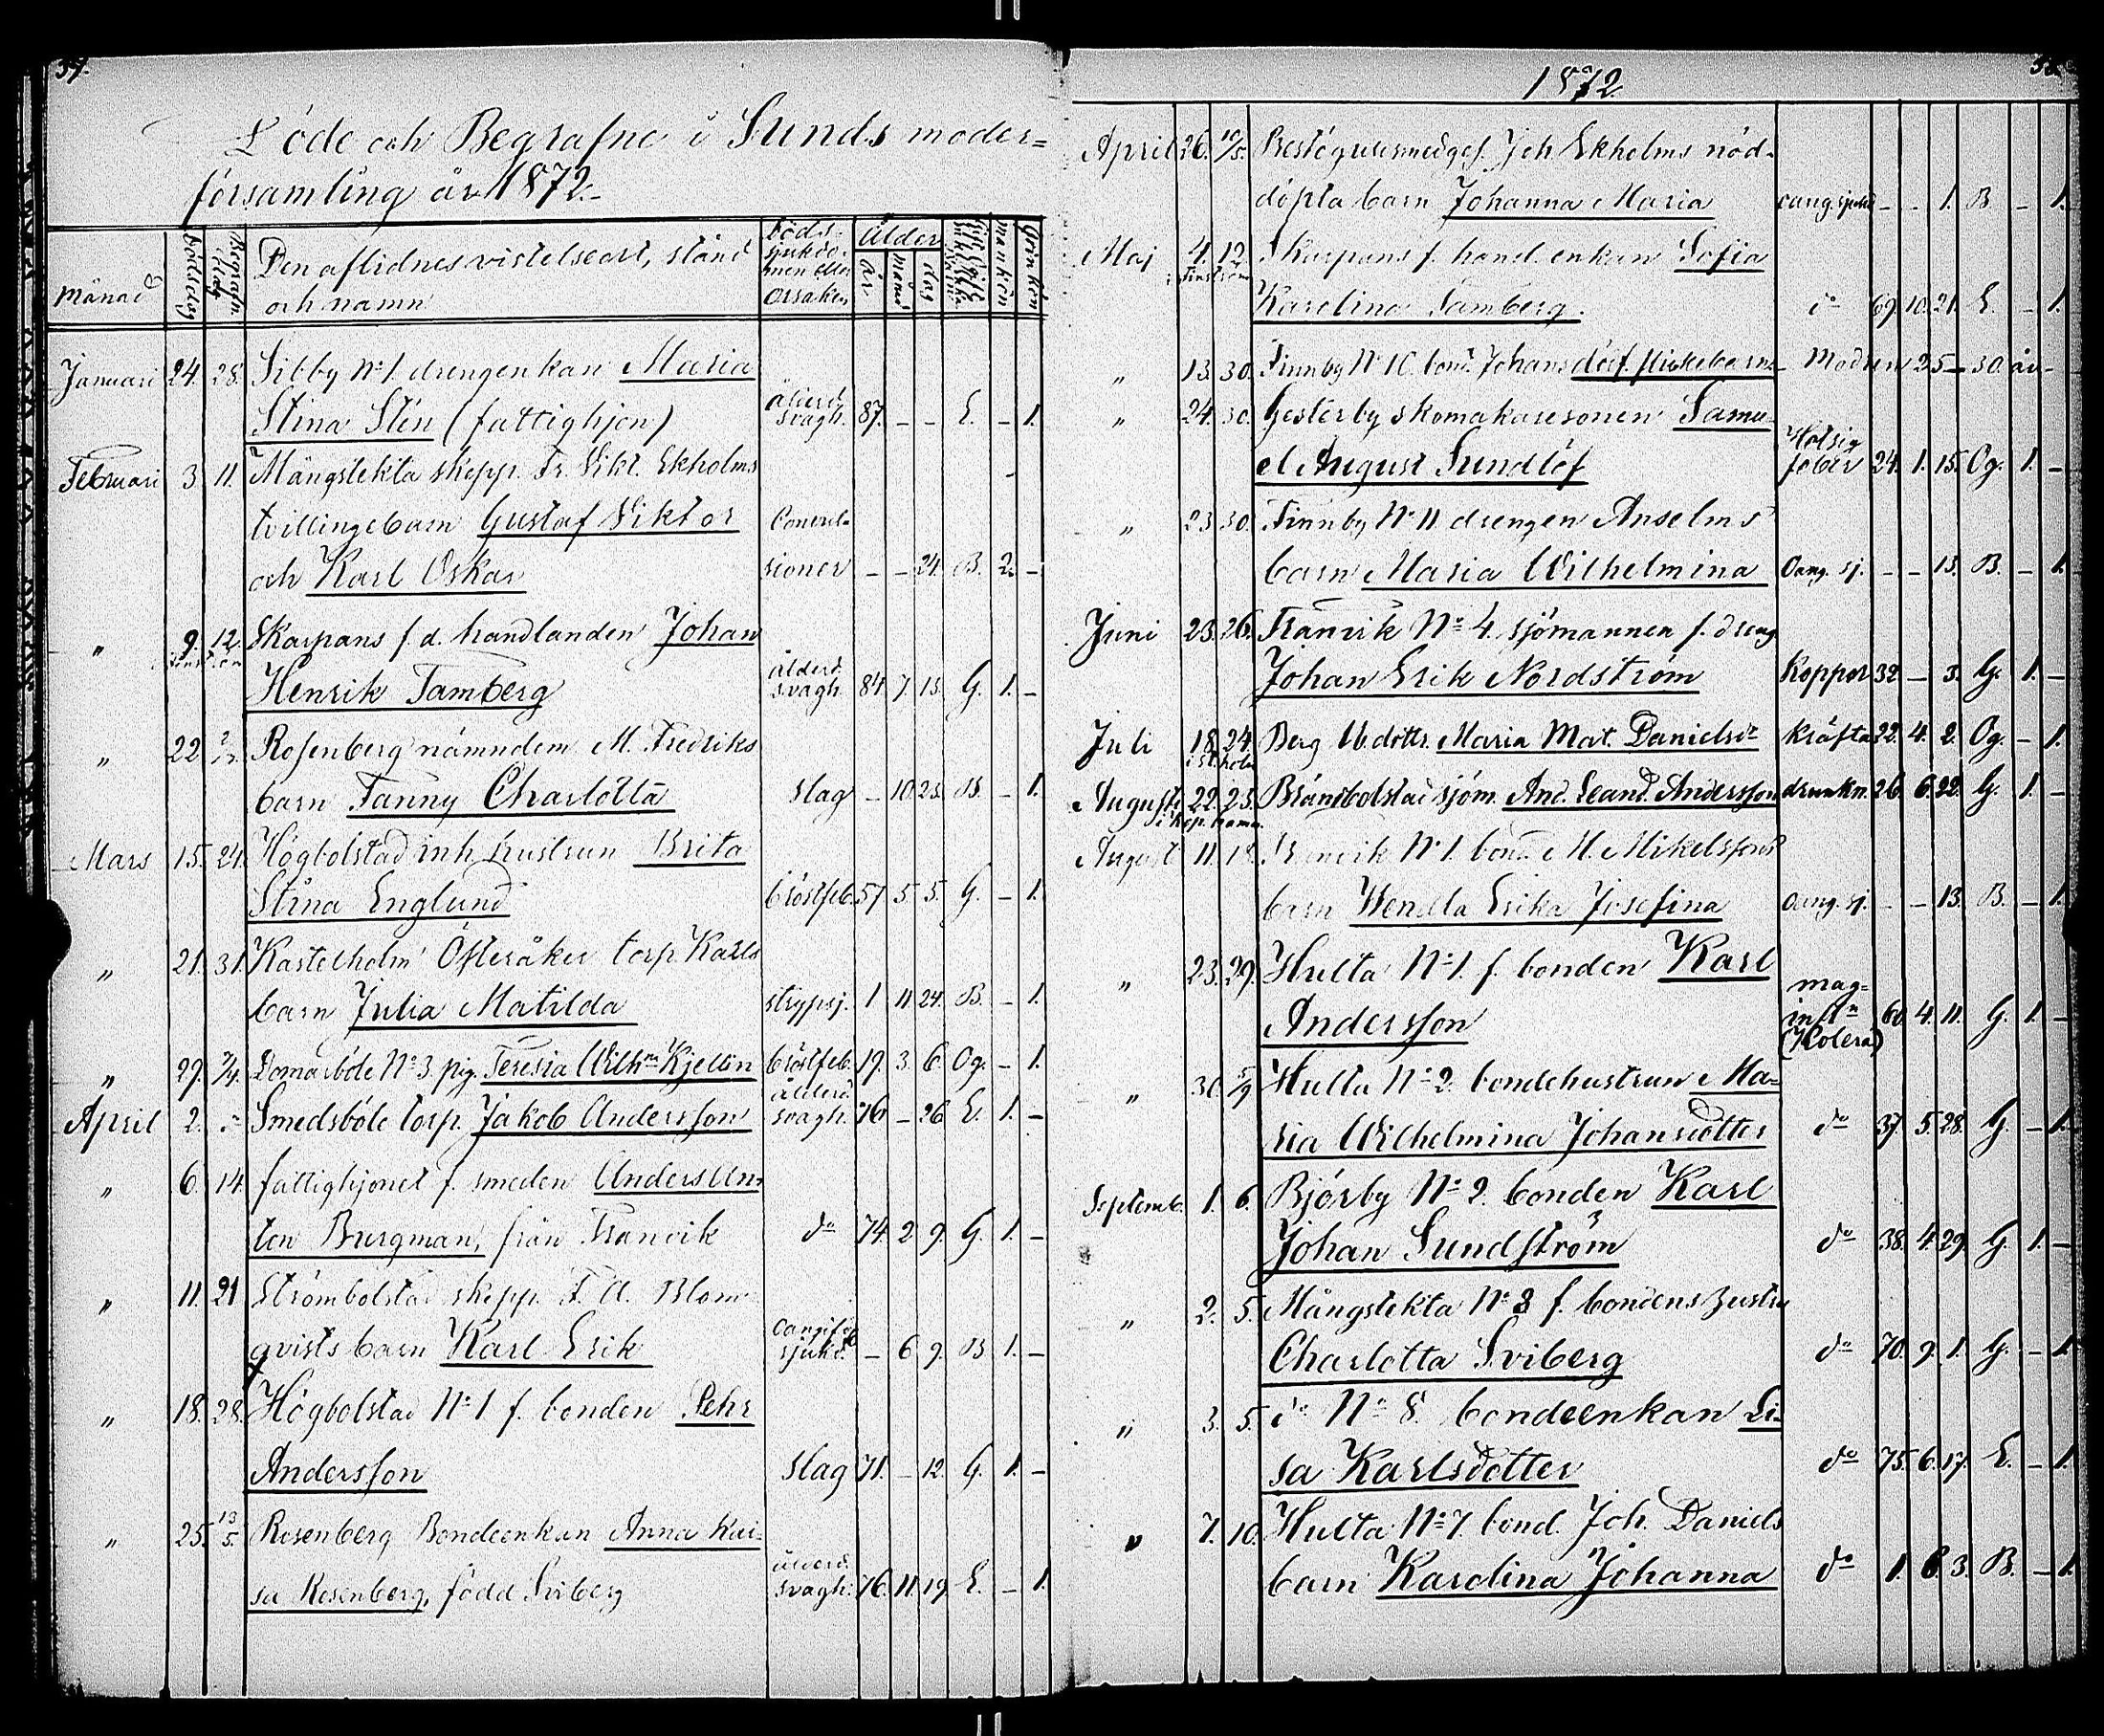 37.
Döde och Begrafne i Sunds moder=
församling år 1872.
Månad
Dödsdag
Begrafn. dag
Den aflidnes vistelseort, stånd
och namn
Döds-
sjukdo-
men eller
orsaken
Ålder
år.
månad
dag
mankön
qvinkön
Januari 24. 28. Sibby No 1. drengenkan Maria
Stina Stén (fattighjon) ålderd. svagh. 87. – – E. – 1.
Februari 3 11. Mångstekta skepp. Fr. Vikt. Ekholms –
tvillingebarn Gustaf Viktor Convul-
och Karl Oskar sioner – – 24. B. 2. –
" 9. 12. Skarpans f. d. handlanden Johan
Henrik Tamberg ålderd. svagh. 84. 7. 13. G. 1. –
" 22 Rosenberg nämndem M. Fredriks
barn Fanny Charlotta slag – 10. 23. B. – 1.
Mars 15. 24. Högbolstad inh. hustrun Brita
Stina Englund bröstfeb. 57. 5. 5. G. – 1.
" 21. 31. Kastelholm Öfteråker torp. Karls
barn Julia Matilda strypsj. 1 11. 24. B. – 1.
" 29. 7/4. Domarböle No 3. pig. Teresia Wilhna Kjellin bröstfeb. 19. 3. 6. Og. – 1.
April 2. Smedsböle torp. Jakob Andersson ålderd. svagh. 76 – 26 E. 1. –
" 6. 14. fattighjonet f. smeden Anders An-
ton Burgman, från Tranvik do 74. 2 9. G. 1. –
" 11. 21 Strömbolstad skepp. F. A. Blom-
qvists barn Karl Erik sjukd. – 6 9. B 1. –
" 18. 28. Högbolstad No 1 f. bonden Pehr
Andersson slag 71. – 12. G. 1. –
" 25. 13/5. Rosenberg Bondeenkan Anna Kai-
sa Rosenberg, född Sviberg ålderd. svagh. 76. 11. 19 E. – 1.
1872
April 26. 10/5. Joh Ekholms nöd-
döpta barn Johanna Maria oang. sjukd – – 1. B – 1.
Maj 4. 12. Skarpans f. hand. enkan Sofia
Karolina Tamberg. do 69. 10. 21. E. – 1.
" 13. 30. Finnby No 10. bond. Johans dödf. flickebarn – Modren 25 – 30. år –
" 24. 30. Gesterby skomakaresonen Samu-
el August Sundlöf Hotsig feber 24. 1. 15. Og. 1. –
" 23. 30. Finnby No 11. drengen Anselms
barn Maria Wilhelmina Oang. sj. – – 13. B. – 1.
Juni 23. 26. Tranvik No 4. sjömannen f. dreng
Johan Erik Nordström Koppor 32 – 3. G. 1. –
Juli 18. 24. Berg b.dottr. Maria Mat. Danielsdr kräfta 22. 4. 2. Og. – 1.
i St. holm
Augusti 22. 23. Brändbolstad sjöm. And. Leand. Andersson drunkn. 26. 6. 22. G. 1. –
i Köp. hamn.
August 11. 18. Tranvik No 1. bond. M. Mikelssons
barn Wendla Erika Josefina oang. sj. – – 13. B. – 1.
" 23. 29. Hulta No 1. f. bonden Karl
Andersson mag- infl:n (Kolera) 60. 4. 11. G. 1. –
" 30. 5/9 Hulta No 2. bondehustrun Ma-
ria Wilhelmina Johansdotter do 37. 5. 28. G. – 1.
Septemb. 1. 6. Björby No 2. bonden Karl
Johan Sundström do 38. 4. 29. G. 1. –
" 2. 5. Mångstekta No 3 f. bondens hustru
Charlotta Sviberg do 70. 9. 1. G. – 1.
" 3. 5. do No 8. bondeenkan Li-
sa Karlsdotter do 75. 6. 17. E. – 1.
" 7. 10. Hulta No 7. bond. Joh. Daniels
barn Karolina Johanna do 1. 8. 3. B. – 1.